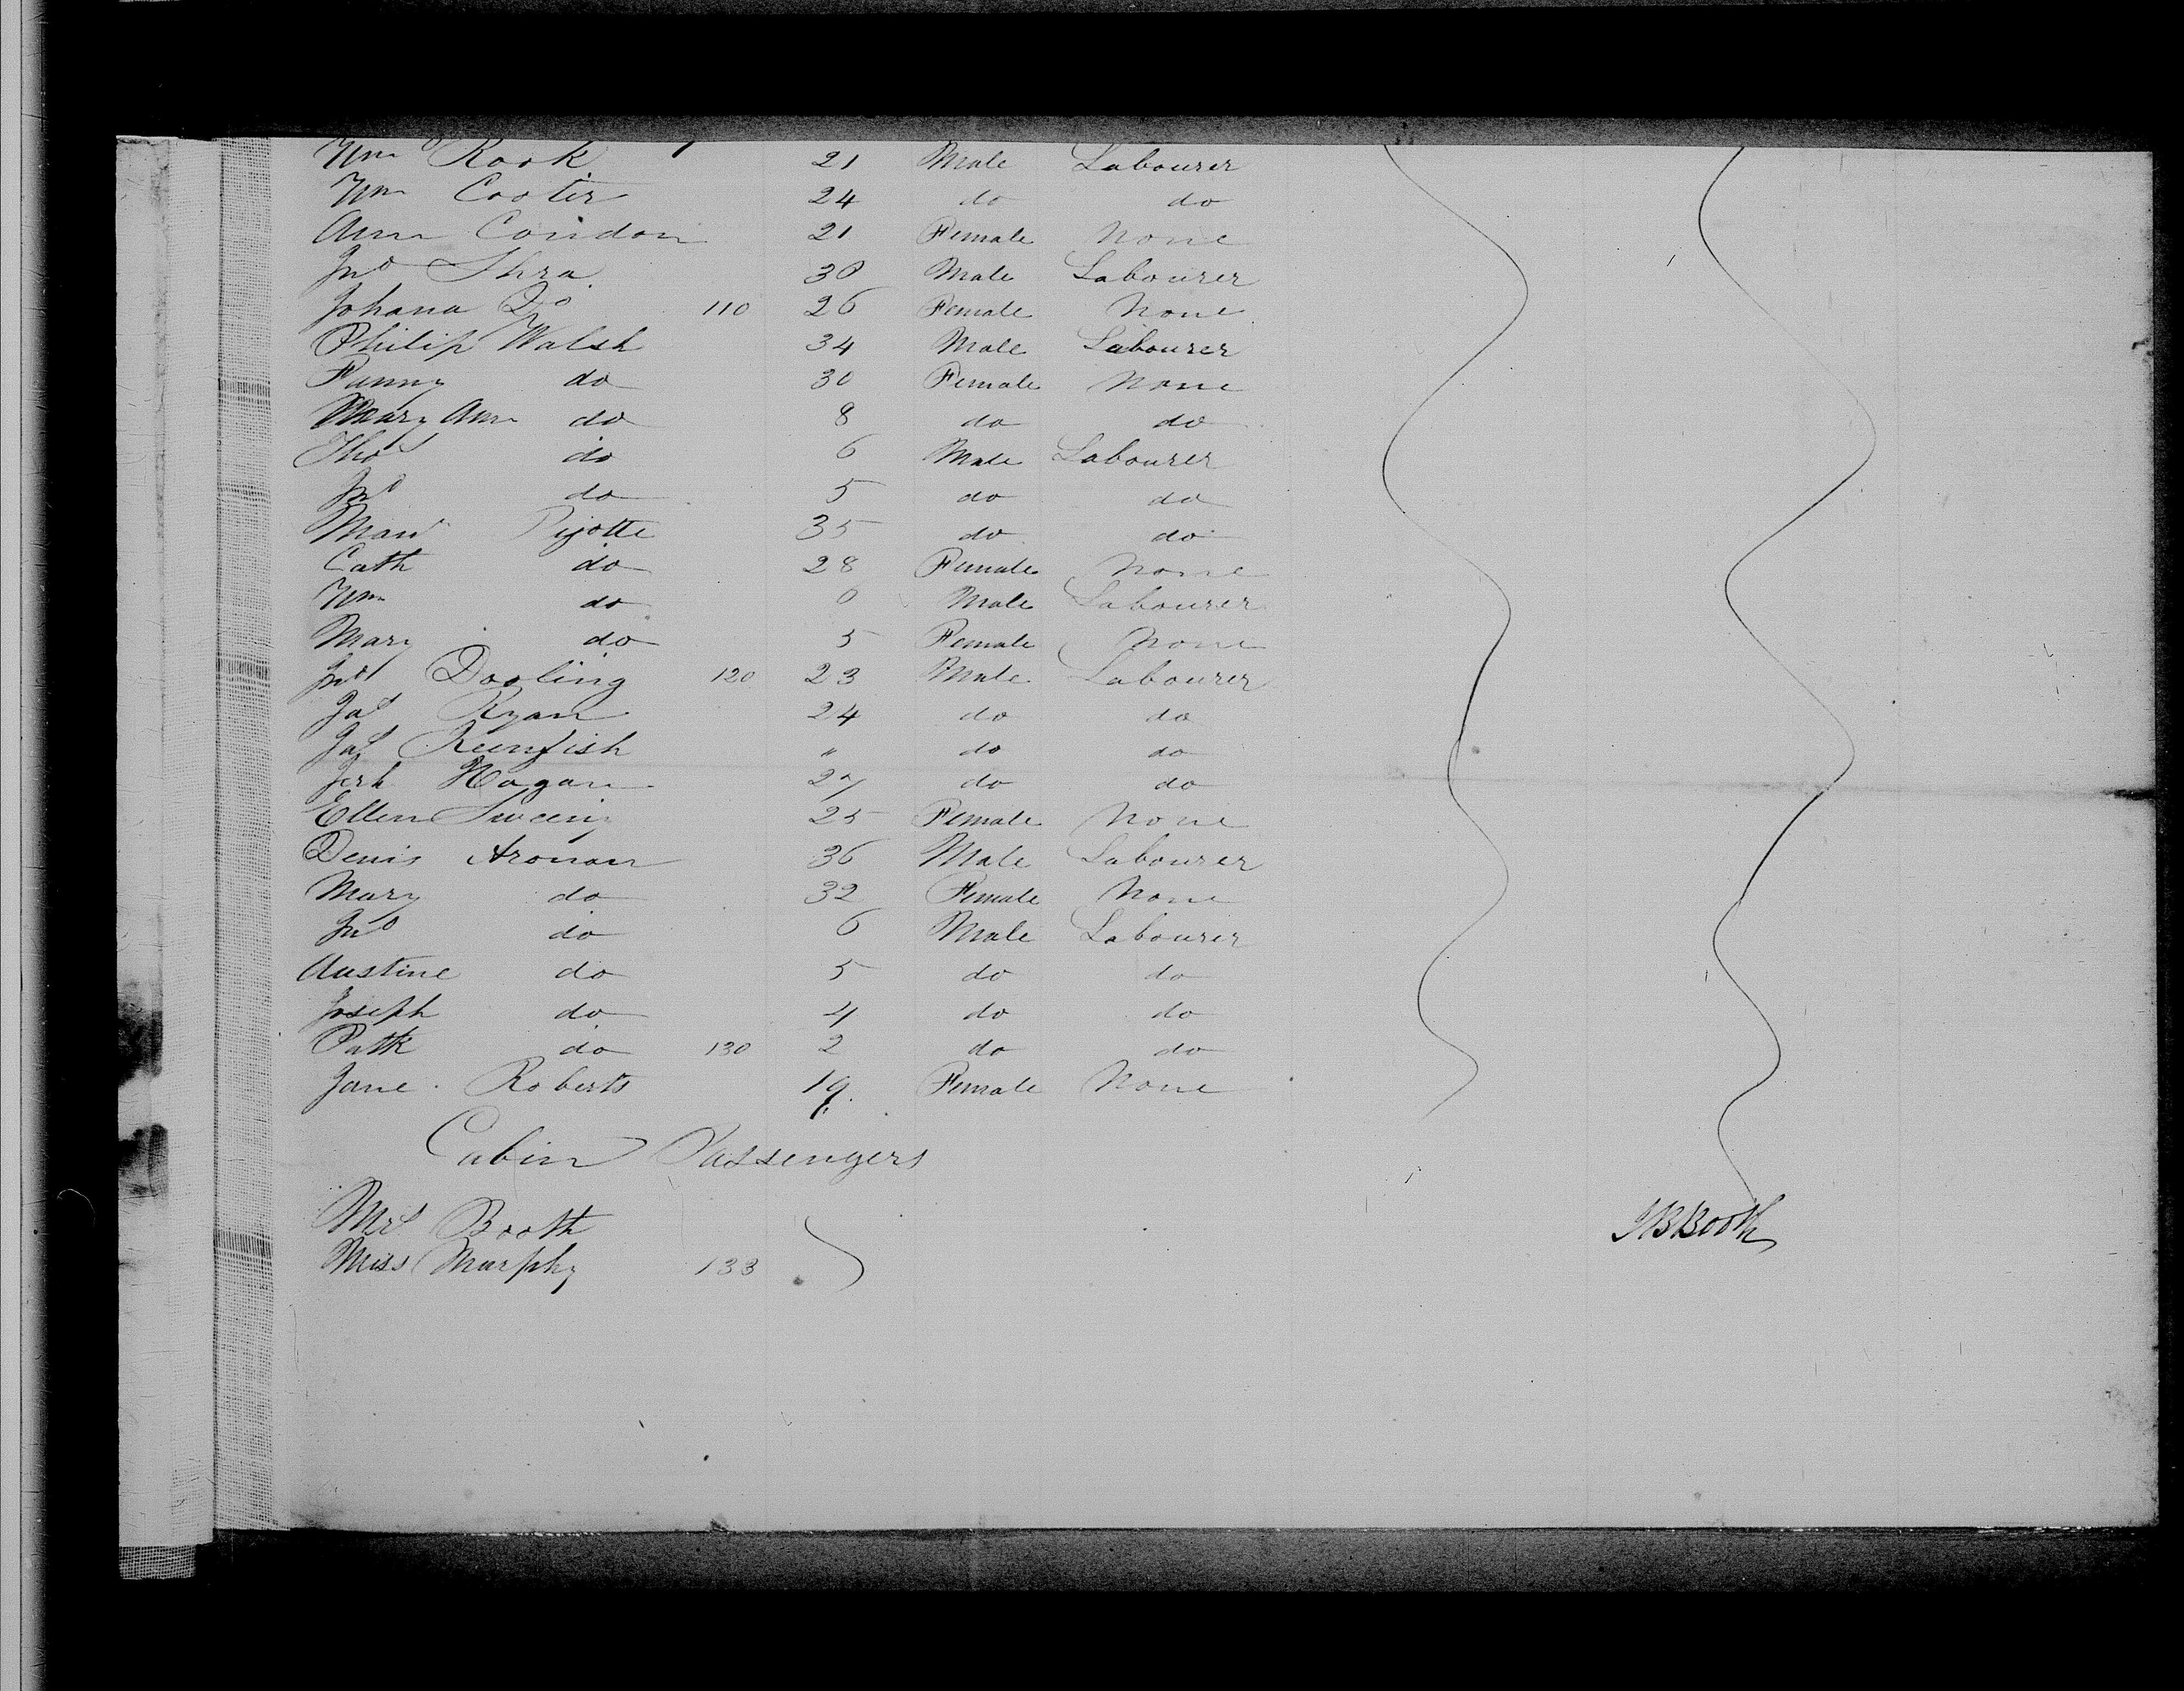 Wm Rook 21 Male Labourer
Wm Cooter 24 do do
Ann Condon 21 Female None
Jno Shea 30 Male Labourer
Johana Do 110 26 Female None
Philip Walsh 34 Male Labourer
Fanny do 30 Female None
Mary Ann do 8 do do
Thos do 6 Male Labourer
Jno do 5 do do
Pigotte 35 do do
Cath do 28 Female None
Wm do Male Labourer
Mary do 5 Female None
Dooling 120 23 Male Labourer
Jas Ryan 24 do do
Jas " do do
Jerh Hogan 27 do do
Ellen Sweeny 25 Female None
Denis Aronan 36 Male Labourer
Mary do 32 Female None
Jno do 6 Male Labourer
Austine do 5 do do
Joseph do 4 do do
Patk do 130 2 do do
Jane Roberts 19 Female None
Cabin Passengers
Mrs Booth
Miss Murphy 133
JB Booth